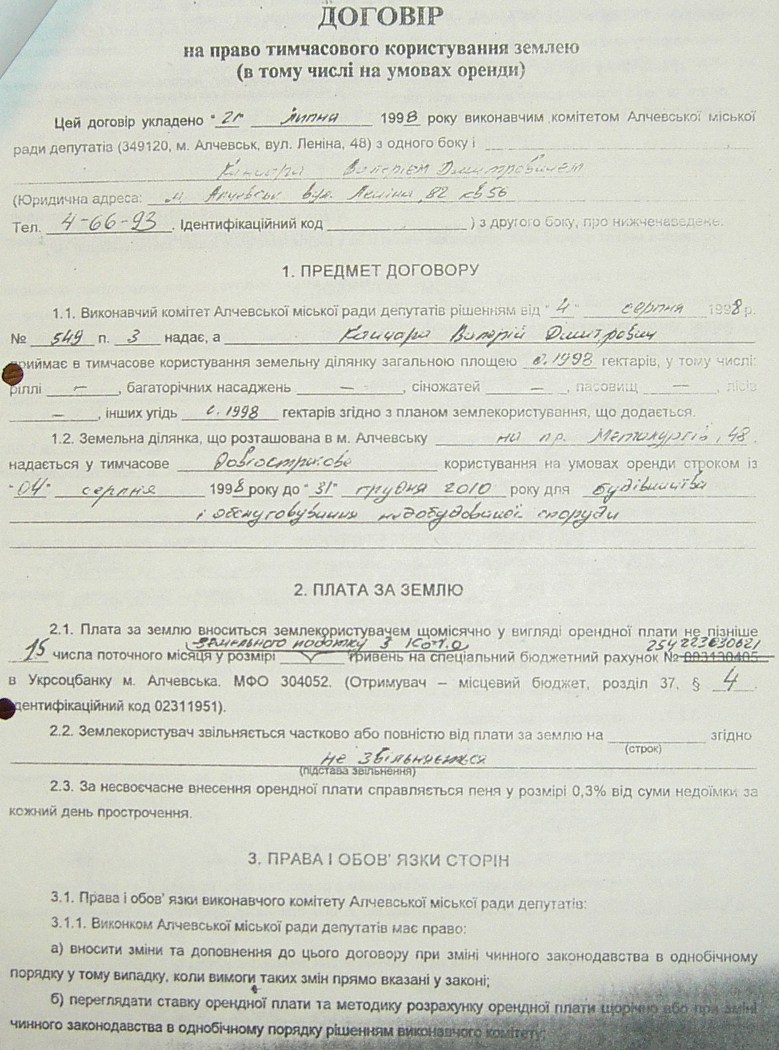 ДОГОВІР
на право тимчасового користування землею
(в тому числі на умовах оренди)
Цей договір укладено " " липня 1998 року виконавчим комітетом Алчевської міської
ради депутатів (349120, м. Алчевськ, вул. Леніна, 48) з одного боку і
Дмитровичем
(Юридична адреса: м. Алчевськ вул. Леніна, 82 кв 56
Тел. 4-66-93. Ідентифікаційний код ) з другого боку, про нижченаведене.
1. ПРЕДМЕТ ДОГОВОРУ
1.1. Виконавчий комітет Алчевської міської ради депутатів рішенням від "4" серпня 1998 р.
№ 549 п. 3 надає, а Валерій Дмитрович
приймає в тимчасове користування земельну ділянку загальною площею 0.1998 гектарів, у тому числі:
ріллі —, багаторічних насаджень —, сіножатей —, пасовищ —, лісів
—, інших угідь 0.1998 гектарів згідно з планом землекористування, що додається.
1.2. Земельна ділянка, що розташована в м. Алчевську на пр. Металургів, 48,
надається у тимчасове довгострокове користування на умовах оренди строком із
"04" серпня 1998 року до "31" грудня 2010 року для будівництва
і обслуговування недобудованої споруди
2. ПЛАТА ЗА ЗЕМЛЮ
2.1. Плата за землю вноситься землекористувачем щомісячно у вигляді орендної плати не пізніше
земельного податку з
15 числа поточного місяця у розмірі гривень на спеціальний бюджетний рахунок №
в Укрсоцбанку м. Алчевська. МФО 304052. (Отримувач – місцевий бюджет, розділ 37, § 4.
ідентифікаційний код 02311951).
2.2. Землекористувач звільняється частково або повністю від плати за землю на згідно
(строк)
не звільняється
(підстава звільнення)
2.3. За несвоєчасне внесення орендної плати справляється пеня у розмірі 0,3% від суми недоїмки за
кожний день прострочення.
3. ПРАВА І ОБОВ' ЯЗКИ СТОРІН
3.1. Права і обов' язки виконавчого комітету Алчевської міської ради депутатів:
3.1.1. Виконком Алчевської міської ради депутатів має право:
а) вносити зміни та доповнення до цього договору при зміні чинного законодавства в однобічному
порядку у тому випадку, коли вимоги таких змін прямо вказані у законі;
б) переглядати ставку орендної плати та методику розрахунку орендної плати щорічно або при зміні
чинного законодавства в однобічному порядку рішенням виконавчого комітету;